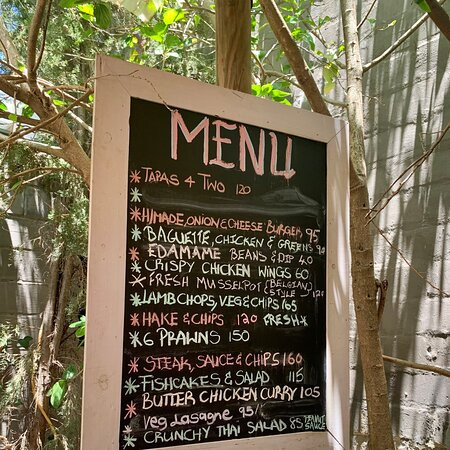 MENU
* TAPAS 4 TWO 120
*
* H/MADE, ONION & CHEESE BURGER 95
* BAGUETTE, CHICKEN & GREENS 90
* EDAMAME BEANS & DIP 40
* CRISPY CHICKEN WINGS 60
* FRESH MUSSELPOT (BELGIAN STYLE) 120
* LAMB CHOPS, VEG & CHIPS 165
* HAKE & CHIPS 120 FRESH *
* 6 PRAWNS 150
* STEAK, SAUCE & CHIPS 160
* FISHCAKES & SALAD 115
* BUTTER CHICKEN CURRY 105
* VEG LASAGNE 95
* CRUNCHY THAI SALAD 85 PEANUT SAUCE